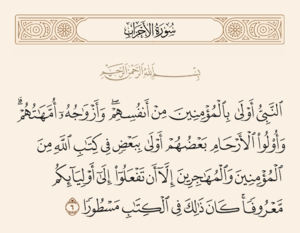 سُورَةُ الأَحْزَابِ
بِسْمِ اللَّهِ الرَّحْمَٰنِ الرَّحِيمِ
النَّبِيُّ أَوْلَىٰ بِالْمُؤْمِنِينَ مِنْ أَنفُسِهِمْ ۖ وَأَزْوَاجُهُ أُمَّهَاتُهُمْ ۗ
وَأُولُوا الْأَرْحَامِ بَعْضُهُمْ أَوْلَىٰ بِبَعْضٍ فِي كِتَابِ اللَّهِ مِنَ
الْمُؤْمِنِينَ وَالْمُهَاجِرِينَ إِلَّا أَن تَفْعَلُوا إِلَىٰ أَوْلِيَائِكُم
مَّعْرُوفًا ۚ كَانَ ذَٰلِكَ فِي الْكِتَابِ مَسْطُورًا ۝٦